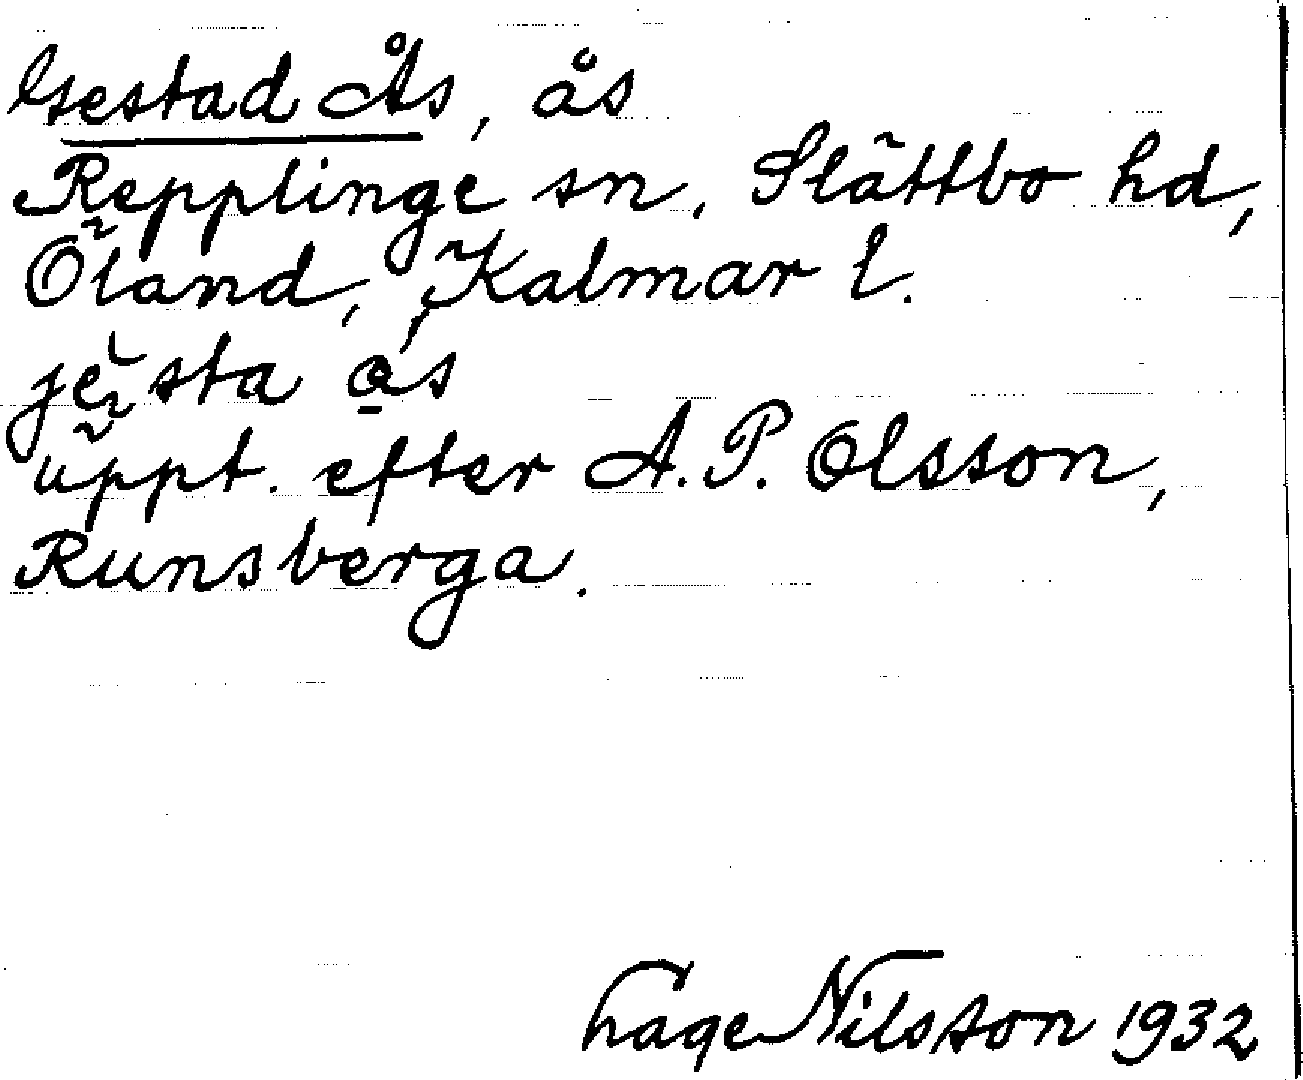 Gestad Ås, ås
Repplinge sn, Slättbo hd,
Öland, Kalmar l.
jesta ås
uppt. efter A. P. Olsson,
Runsberga.
Hage Nilsson 1932